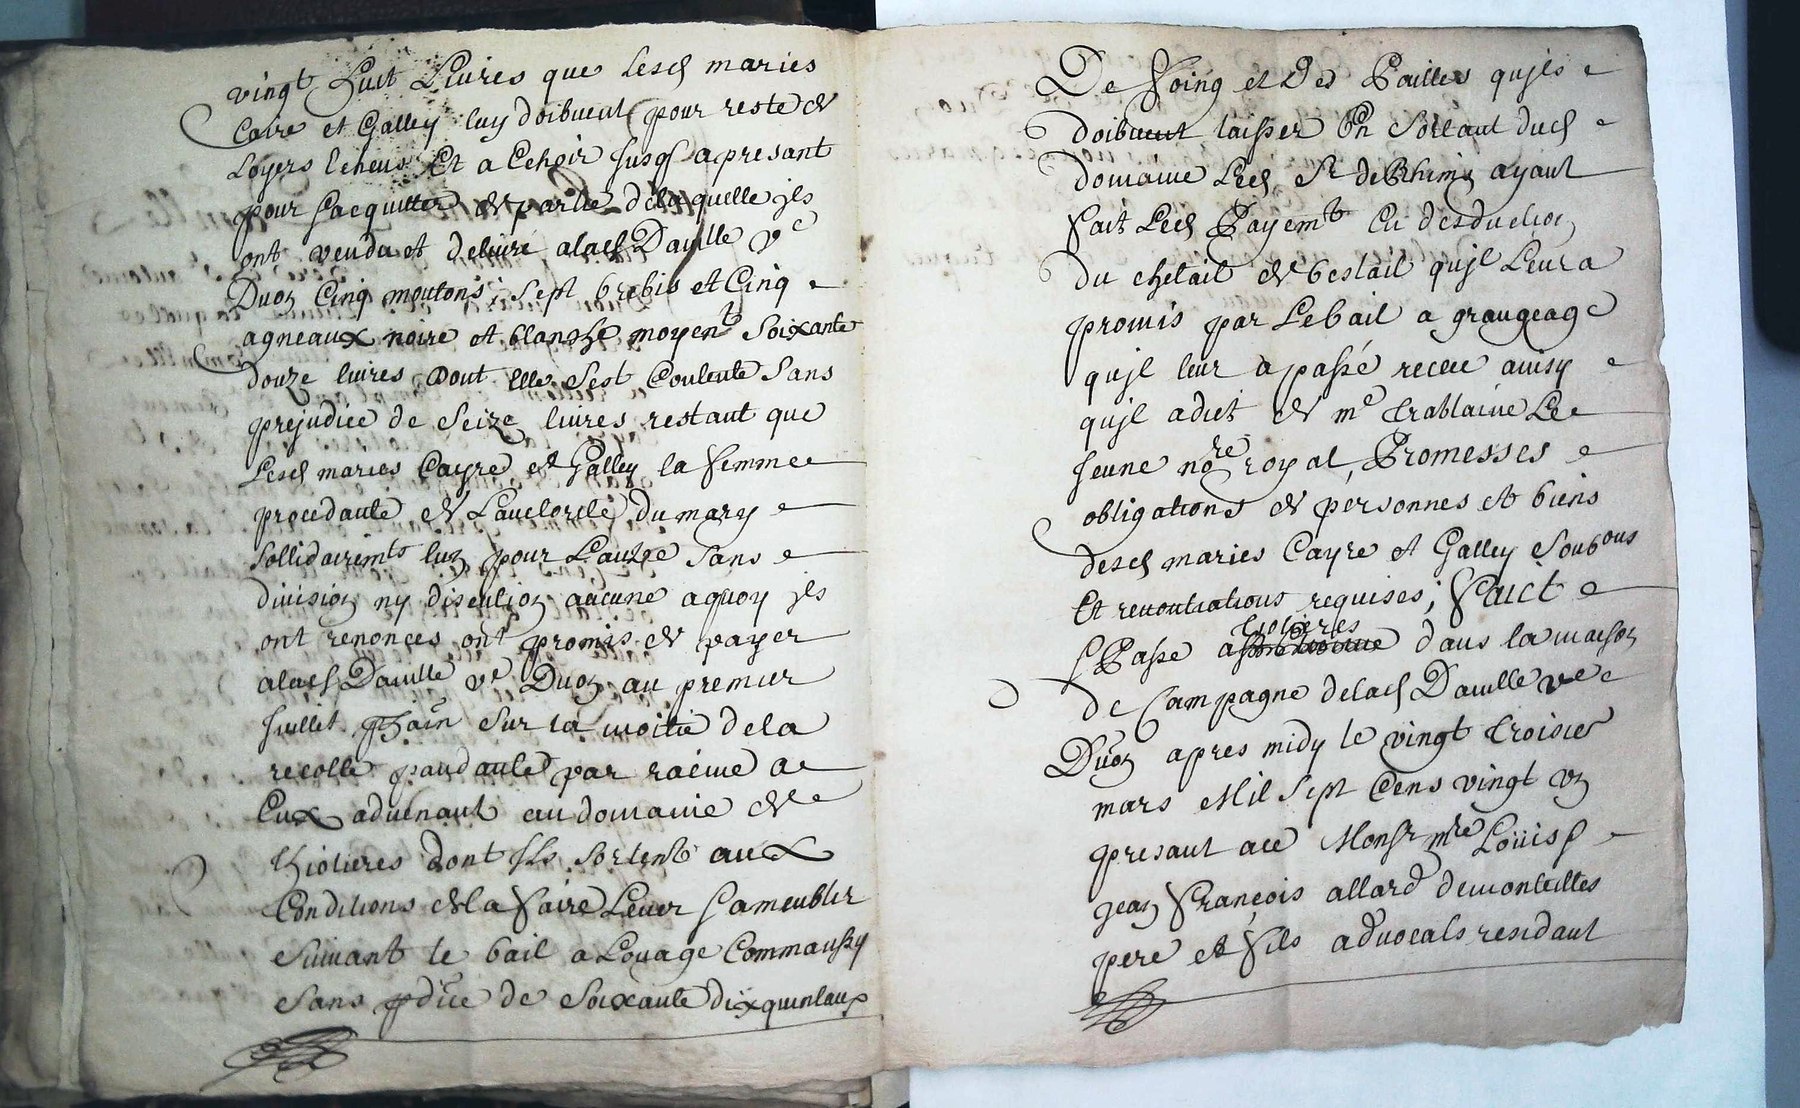 vingt huit Livres que lesd maries
Caire et Galley luy doibvent pour reste de
Loyers Echeus Et a Echoir jusq apresant
pour sacquitter de partie delaquelle jls
ont vendu et delivré alad Dauille ve
Duon Cinq moutons, sept brebis et Cinq
agneaux noire et blanche moyent soixante
douze livres dont Elle sest Contente sans
prejudice de seize livres restant que
Lesd maries Cayre et Galley la femme
procedante de Lauctorité du mary
sollidairemt lun pour Lautre sans
division ny discution aucune aquoy jls
ont renonces ont promis de payer
alad Dauille ve Duon au premier
juillet sur la moitié dela
recolte pandante par racine a
Eux advenant au domaine de
Thiolieres dont jls sortent aux
Conditions de la faire Lever
suivant le bail a Louage Comm aussy
sans pdice de soixante dix quintaux
De foing et des Pailles qujls
doibvent laisser En sortant dud
domaine Led sr de Rhimz ayant
fait Led Payemt En desduction
du chetail de bestail qujl Leur a
promis par Le bail a grangeage
qujl leur a passé receu ainsy
qujl a dit de me Trablaine Le
jeune nore royal, Promesses
obligations de personnes et biens
desd maries Cayre et Galley soubons
Et renontiations requises; faict
& Passe a Tiolieres dans la maison
de Campagne delad Dauille ve
Duon apres midy le vingt troisie
mars Mil sept Cens vingt un
presant ace Monsr mre Loüis &
jean François allard demonteilles
pere et fils advocats residant